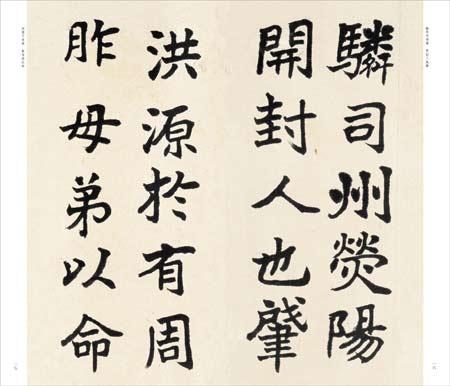 驎司州熒陽
開封人也肇
洪源於有周
胙母弟以命